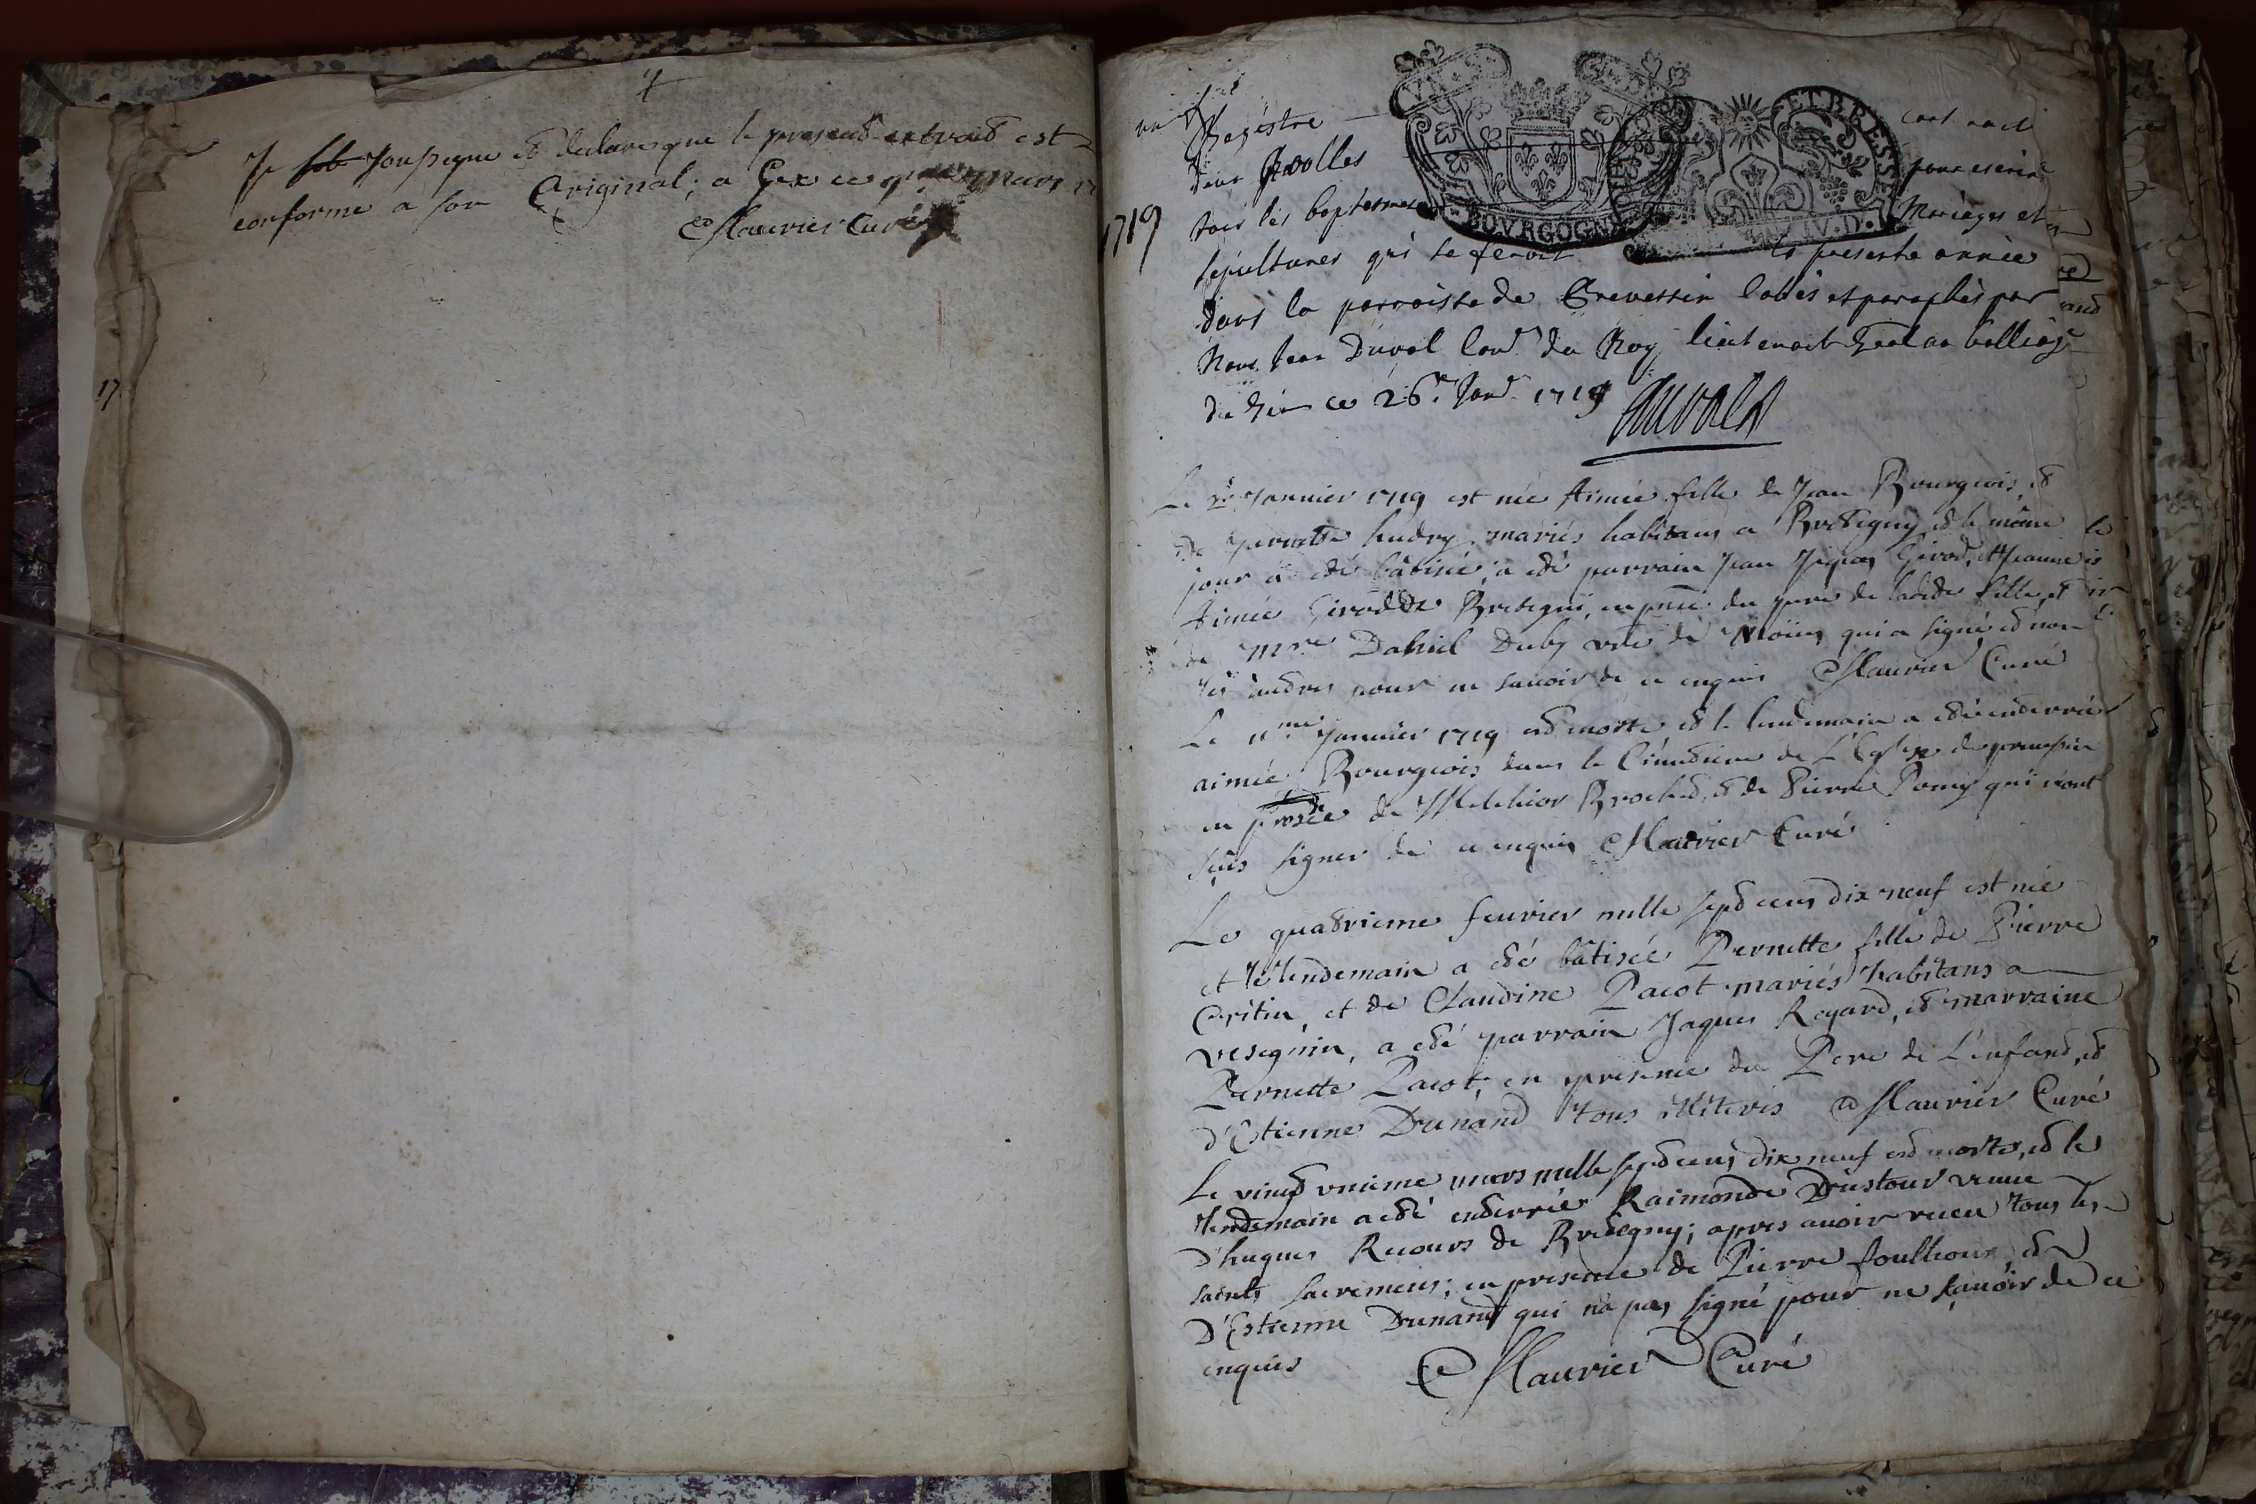 4
Je sousigne et declare que le present extraid est
conforme a son Original; a Gex ce mars
Maurier Curé
17
1719
Registre
deux Rolles
BOVRGOGNE
ET BRESSE
IV.D.
pour escrire
tous les baptesmes
Mariages et
sepultures qui se feront
la presente année
dans la parroisse de Prevessin cottés et paraphés par
Nous Jean Duval Con.r du Roy lieutenant Gnal au balliage
de Gex ce 26.e Janr 1719
Duval
Le Janvier 1719 est née Aimée fille de Jean Bourgeois, et
de pernette hudry mariés habitans a Bretigny et le même
jour a eté bâtisée; a eté parrain Jean Jaques Girod, et Jeanne
Aimée Girod de Bretigni, en du pere de ladite fille et
de Mre Daniel Duby de Moëns qui a signé et non
les autres pour ne sauoir de ce enquis Maurier Curé
Le 11me Januier 1719 est morte, et le lendemain a eté enterrée
aimée Bourgeois dans le Cimetiere de L'Eglise de preuessin
en de Melchior Brochet, et de Pierre Pomy qui n'ont
sçus signer de ce enquis Maurier Curé
Le quatrieme feurier mille sept cens dix neuf est née
et le lendemain a eté bâtisée Pernette fille de Pierre
Critin, et de Claudine Pacot mariés habitans a
vesegnin, a eté parrain Jaques Regard, et marraine
Pernette Pacot, en presence du Pere de L'enfant, et
d'Estienne Dunand tous illiterés Maurier Curé
Le vingt vnieme mars mille sept cens dix neuf est morte, et le
lendemain a eté enterrée Raimonde Dustour veuue
D'hugues Recours de Bretegny; apres auoir receu tous les
saints sacremens; en presence de Pierre foullioux, et
D'Estienne Dunand qui na pas signé pour ne sçauoir de ce
enquis Maurier Curé